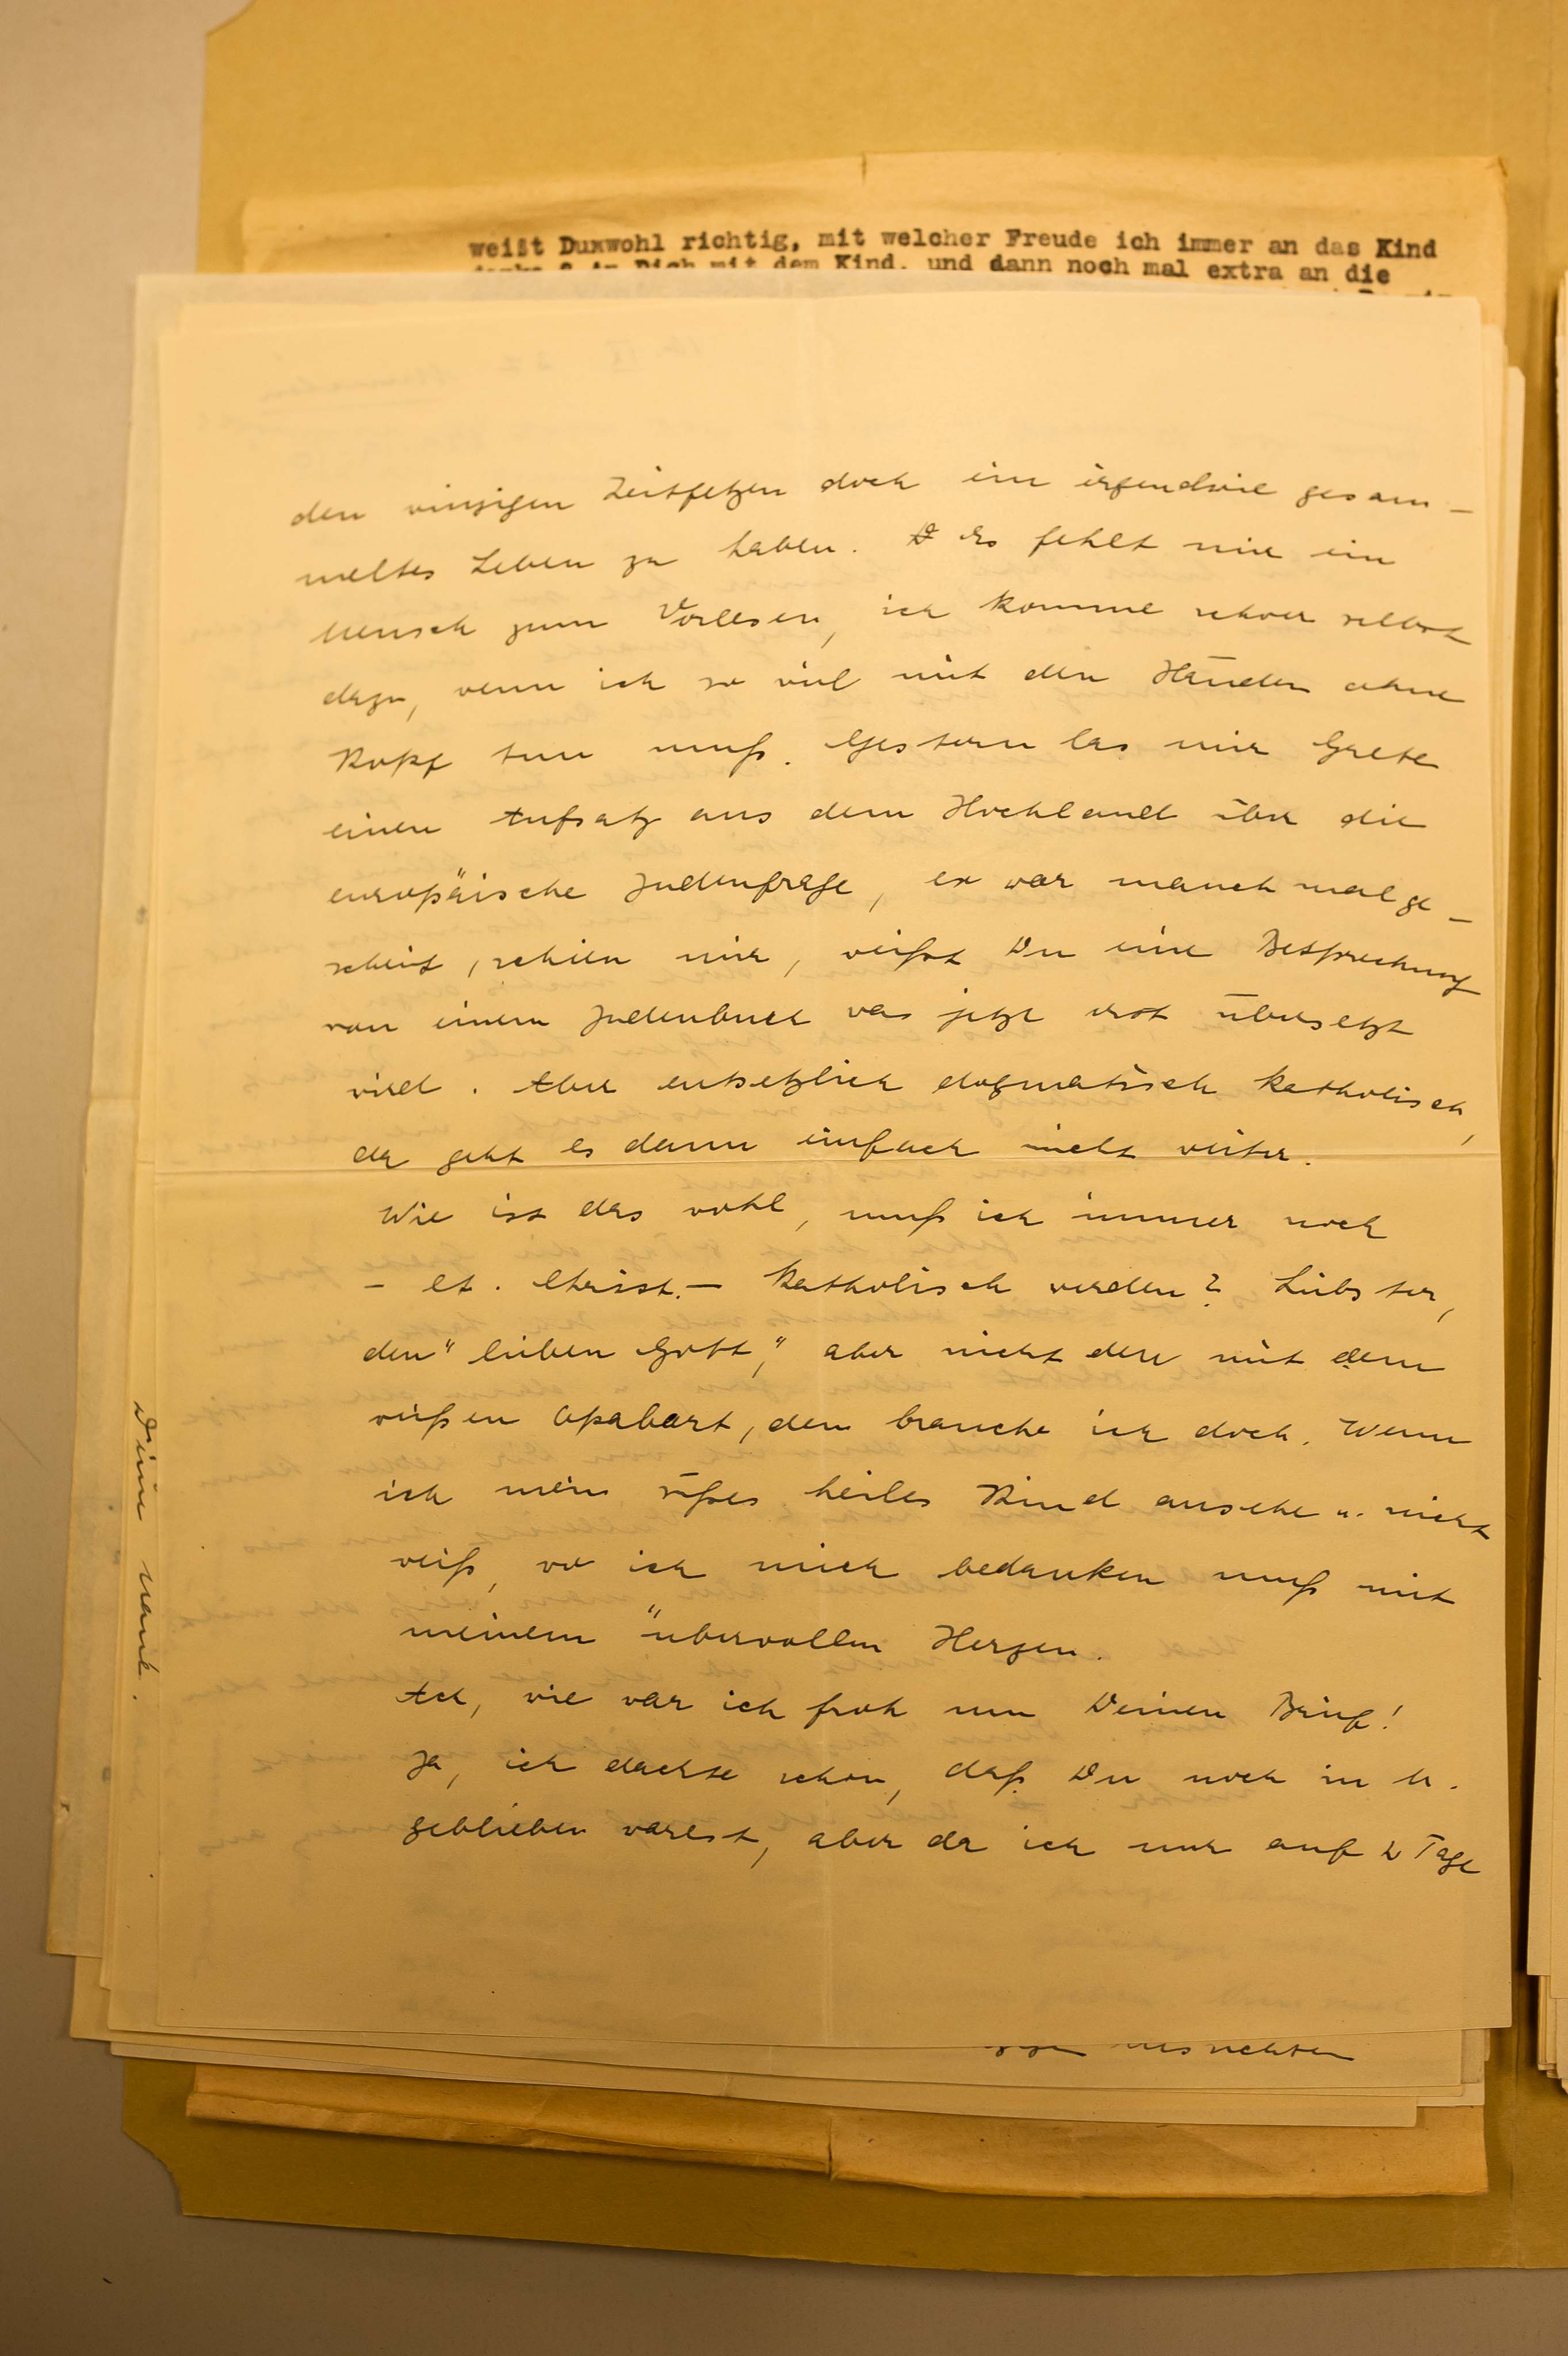 weißt Duxwohl richtig, mit welcher Freude ich immer an das Kind
denke & an Dich mit dem Kind. und dann noch mal extra an die
den winzigen Zeitfetzen doch ein irgendwie gesam-
meltes Leben zu haben. Es fehlt mir ein
Mensch zum Vorlesen, ich komme schwer selbst
dazu, wenn ich so viel mit den Händen ohne
Kopf tun muß. Gestern las mir Grete
einen Aufsatz aus dem Hochland über die
europäische Judenfrage, er war manchmal ge-
scheit, schien mir, weißt Du eine Besprechung
von einem Judenbuch was jetzt erst übersetzt
wird. Aber entsetzlich dogmatisch katholisch,
da geht es dann einfach nicht weiter.
Wie ist das wohl, muß ich immer noch
- et. Christ. - katholisch werden? Liebster,
den "lieben Gott," aber nicht den mit dem
weißen Opabart, den brauche ich doch. Wenn
ich mein süßes heiles Kind ansehe u. nicht
weiß, wo ich mich bedanken muß mit
meinem übervollen Herzen.
Ach, wie war ich froh um Deinen Brief!
Ja, ich dachte schon, daß Du noch in M.
geblieben warest, aber da ich nur auf 2 Tage
Deine Nane.